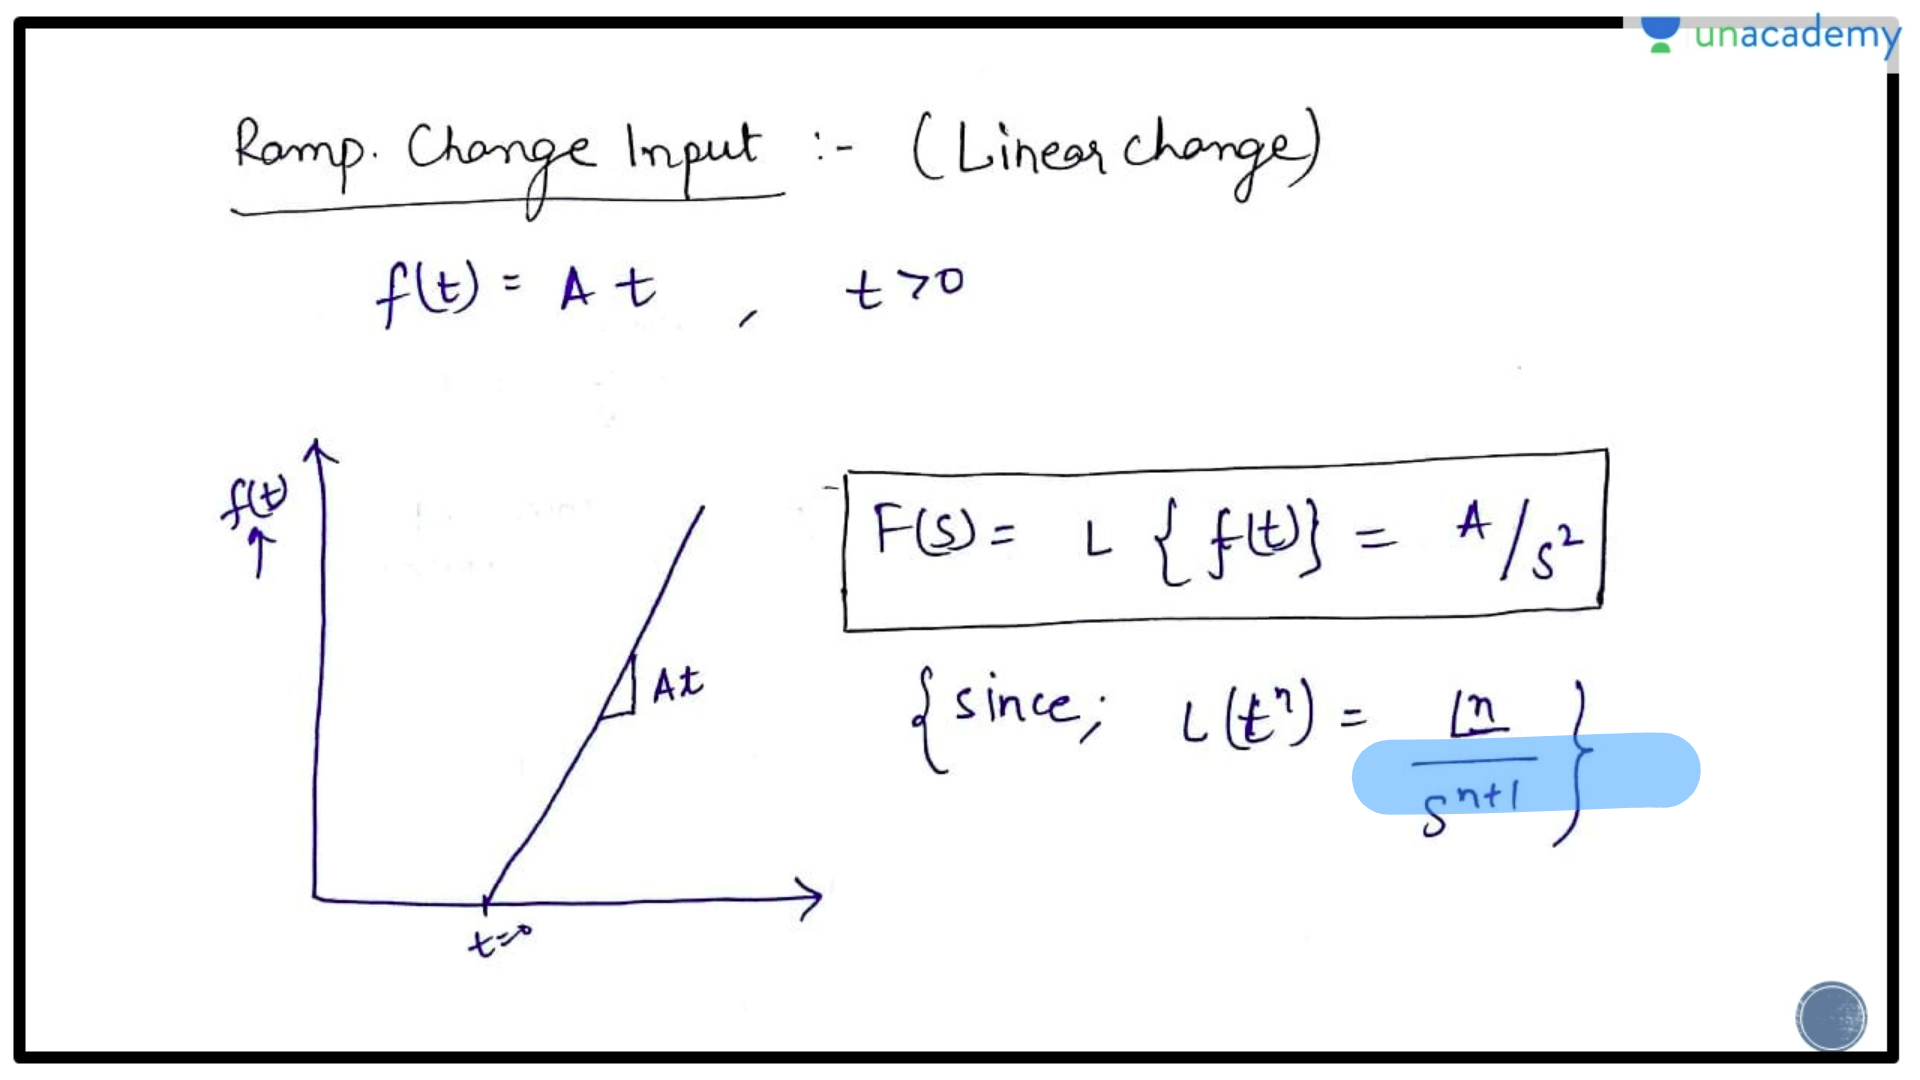 unacademy
Ramp. Change Input :- (Linear change)
f(t) = A t , t >0
f(t)
↑
F(s) = L { f(t)} = A/s²
At
{since; L(tⁿ) = ⌊n / sⁿ⁺¹ }
t=0